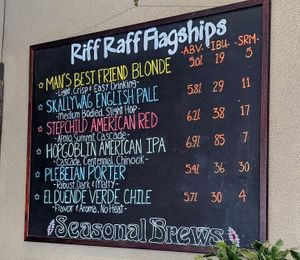 Riff Raff Flagships
-ABV- -IBU- -SRM-
MAN'S BEST FRIEND BLONDE 5.0% 19 5
-Light, Crisp & Easy Drinking-
SKALLYWAG ENGLISH PALE 5.8% 29 11
-Medium Bodied, Slight Hop-
STEPCHILD AMERICAN RED 6.2% 38 17
Summit, Cascade-
HOPGOBLIN AMERICAN IPA 6.9% 85 7
-Cascade, Centennial, Chinook-
PLEBEIAN PORTER 5.4% 36 30
-Robust, Dark & Malty-
EL DUENDE VERDE CHILE 5.7% 30 4
-Flavor & Aroma, No Heat-
Seasonal Brews